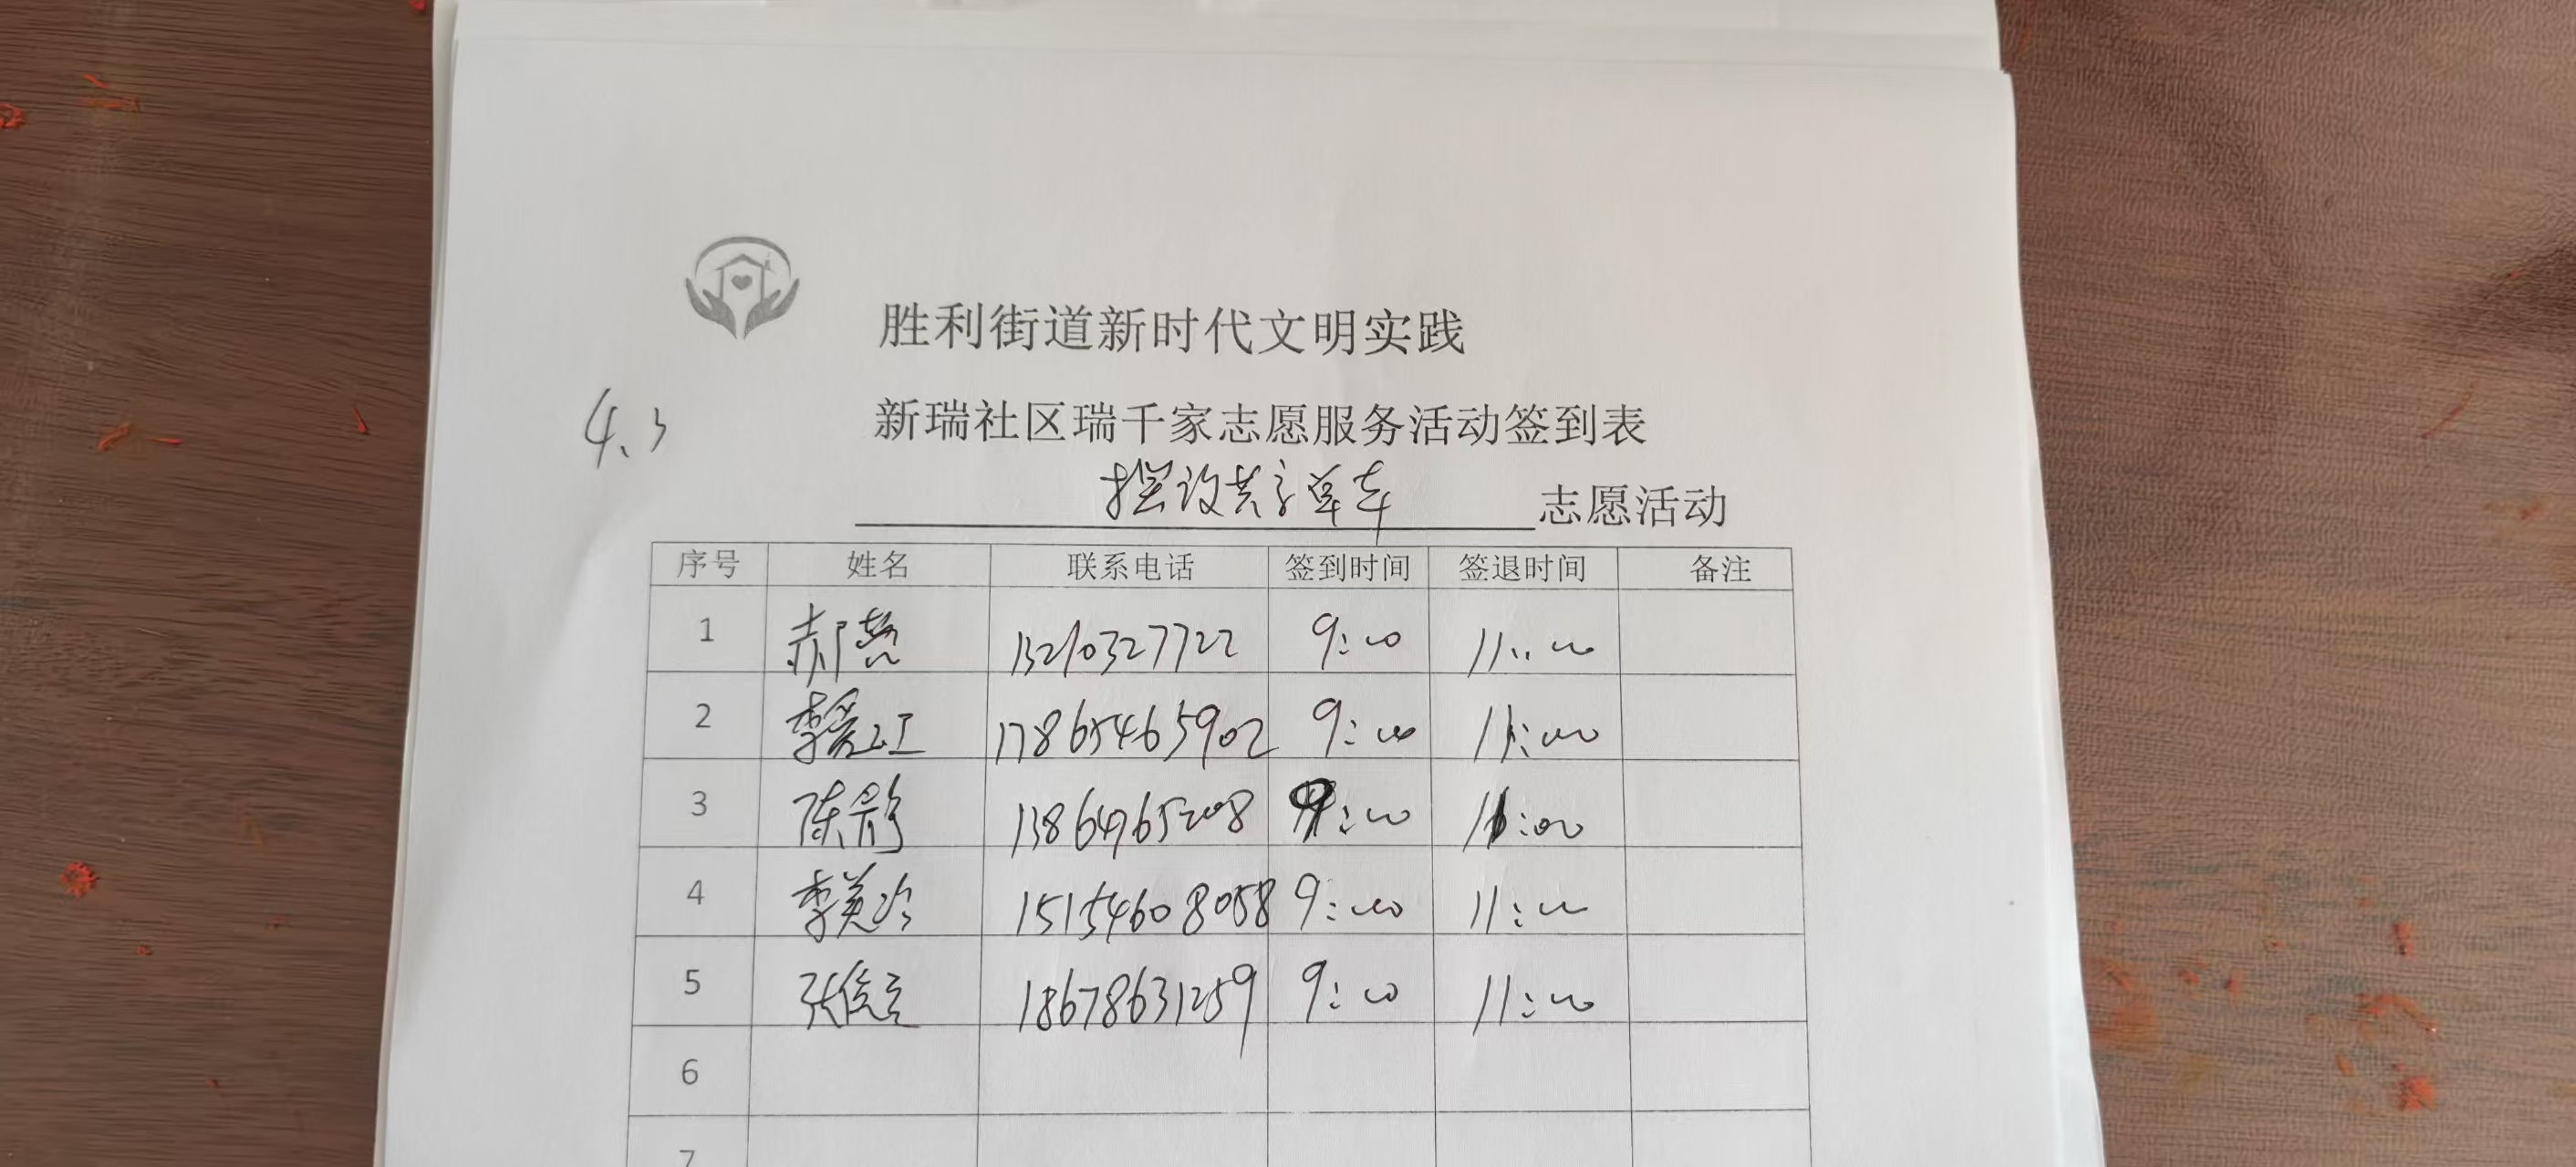 胜利街道新时代文明实践
4.3
新瑞社区瑞千家志愿服务活动签到表
摆设共享单车 志愿活动
序号 姓名 联系电话 签到时间 签退时间 备注
1 郝慧 13210327722 9:00 11:00
2 李爱江 17865465902 9:00 11:00
3 陈静 13864965208 9:00 11:00
4 李美玲 15154608058 9:00 11:00
5 张俊立 18678631259 9:00 11:00
6
7